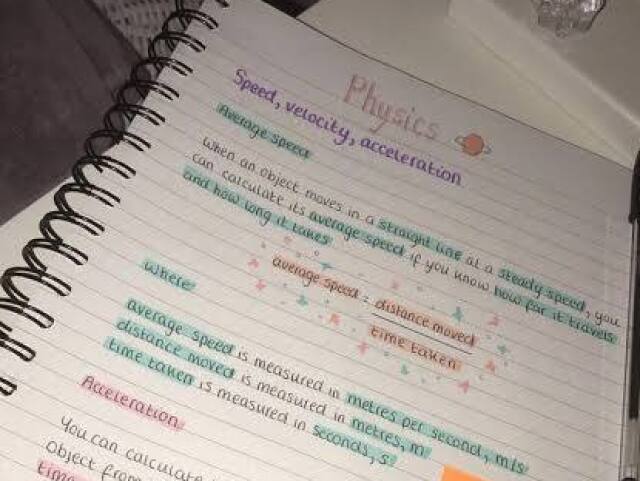 Physics
Speed, velocity, acceleration
Average speed
When an object moves in a straight line at a steady speed, you
can calculate its average speed if you know how far it travels
and how long it takes
average speed = distance moved
time taken
Where:
average speed is measured in metres per second, m/s
distance moved is measured in metres, m
time taken is measured in seconds, s
Acceleration
You can calculate
object from
time